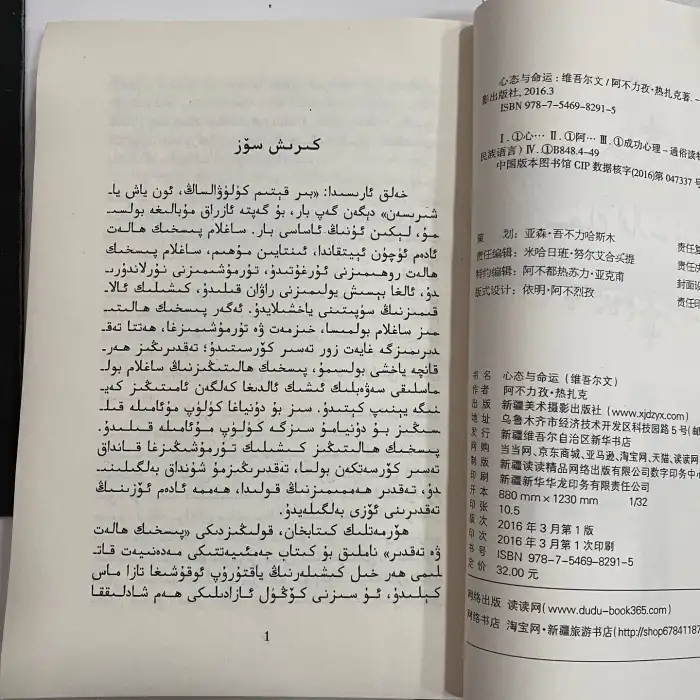 كىرىش سۆز
خەلق ئارىسىدا: «بىر قېتىم كۈلۈۋالساڭ، ئون ياش يا-
شىرىسەن» دېگەن گەپ بار، بۇ گەپتە ئازراق مۇبالىغە بولسى-
مۇ، لېكىن ئۇنىڭ ئاساسى بار. ساغلام پىسخىك ھالەت
ئادەم ئۈچۈن ئېيتقاندا، ئىنتايىن مۇھىم، ساغلام پىسخىك
ھالەت روھىمىزنى ئۇرغۇتىدۇ، تۇرمۇشىمىزنى نۇرلاندۇرى-
دۇ، ئالغا بېسىش يولىمىزنى راۋان قىلىدۇ، كىشىلىك ئالا-
قىمىزنىڭ سۈپىتىنى ياخشىلايدۇ. ئەگەر پىسخىك ھالىتى-
مىز ساغلام بولمىسا، خىزمەت ۋە تۇرمۇشىمىزغا، ھەتتا تەق-
دىرىمىزگە غايەت زور تەسىر كۆرسىتىدۇ؛ تەقدىرىڭىز ھەر-
قانچە ياخشى بولسىمۇ، پىسخىك ھالىتىڭىزنىڭ ساغلام بول-
ماسلىقى سەۋەبلىك ئىشىك ئالدىغا كەلگەن ئامىتىڭىز كەي-
نىگە يېنىپ كېتىدۇ. سىز بۇ دۇنياغا كۈلۈپ مۇئامىلە قىل-
سىڭىز بۇ دۇنيامۇ سىزگە كۈلۈپ مۇئامىلە قىلىدۇ.
پىسخىك ھالىتىڭىز كىشىلىك تۇرمۇشىڭىزغا قانداق
تەسىر كۆرسەتكەن بولسا، تەقدىرىڭىزمۇ شۇنداق بەلگىلىنى-
دۇ، تەقدىر ھەممىمىزنىڭ قولىدا، ھەممە ئادەم ئۆزىنىڭ
تەقدىرىنى ئۆزى بەلگىلەيدۇ.
ھۆرمەتلىك كىتابخان، قولىڭىزدىكى «پىسخىك ھالەت
ۋە تەقدىر» ناملىق بۇ كىتاب جەمئىيەتتىكى مەدەنىيەت قاتـ
لىمى ھەر خىل كىشىلەرنىڭ ياقتۇرۇپ ئوقۇشىغا تازا ماس
كېلىدۇ، ئۇ سىزنى كۆڭۈل ئازادىلىكى ھەم شادلىققا
1
心态与命运：维吾尔文/阿不力孜·热扎克著.－
影出版社, 2016.3
ISBN 978-7-5469-8291-5
Ⅰ.①心… Ⅱ.①阿… Ⅲ.①成功心理－通俗读物
民族语言）Ⅳ.①B848.4-49
中国版本图书馆 CIP 数据核字(2016)第 047337 号
策 划：亚森·吾不力哈斯木
责任编辑：米哈日班·努尔艾合买提
特约编辑：阿不都热苏力·亚克甫
版式设计：依明·阿不烈孜
责任
封面设
责任印
书 名 心态与命运（维吾尔文）
作 者 阿不力孜·热扎克
出 版 新疆美术摄影出版社（www.xjdzyx.com）
地 址 乌鲁木齐市经济技术开发区科技园路 5 号（邮
发 行 新疆维吾尔自治区新华书店
网 购 当当网、京东商城、亚逊逊、淘宝网、天猫、读读网
制 版 新疆读读精品网络出版有限公司数字印务中心
印 刷 新疆新华华龙印务有限责任公司
开 本 880 mm×1230 mm 1/32
印 张 10.5
版 次 2016 年 3 月第 1 版
印 次 2016 年 3 月第 1 次印刷
书 号 ISBN 978-7-5469-8291-5
定 价 32.00 元
网络出版 读读网（www.dudu-book365.com）
网络书店 淘宝网·新疆旅游书店（http://shop67841187